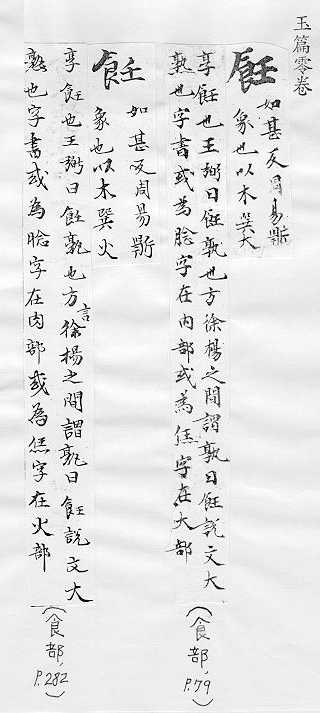 玉篇零卷
飪 如甚反周易鼎
象也以木巽大
享飪也王弼曰飪孰也方徐楊之間謂孰曰飪說文大
熟也字書或為腍字在肉部或為恁字在大部
(食部, P.79)
飪 如甚反周易鼎
象也以木巽火
享飪也王弼曰飪孰也方言徐楊之間謂孰曰飪說文大
熟也字書或為腍字在肉部或為恁字在火部
(食部, P.282)